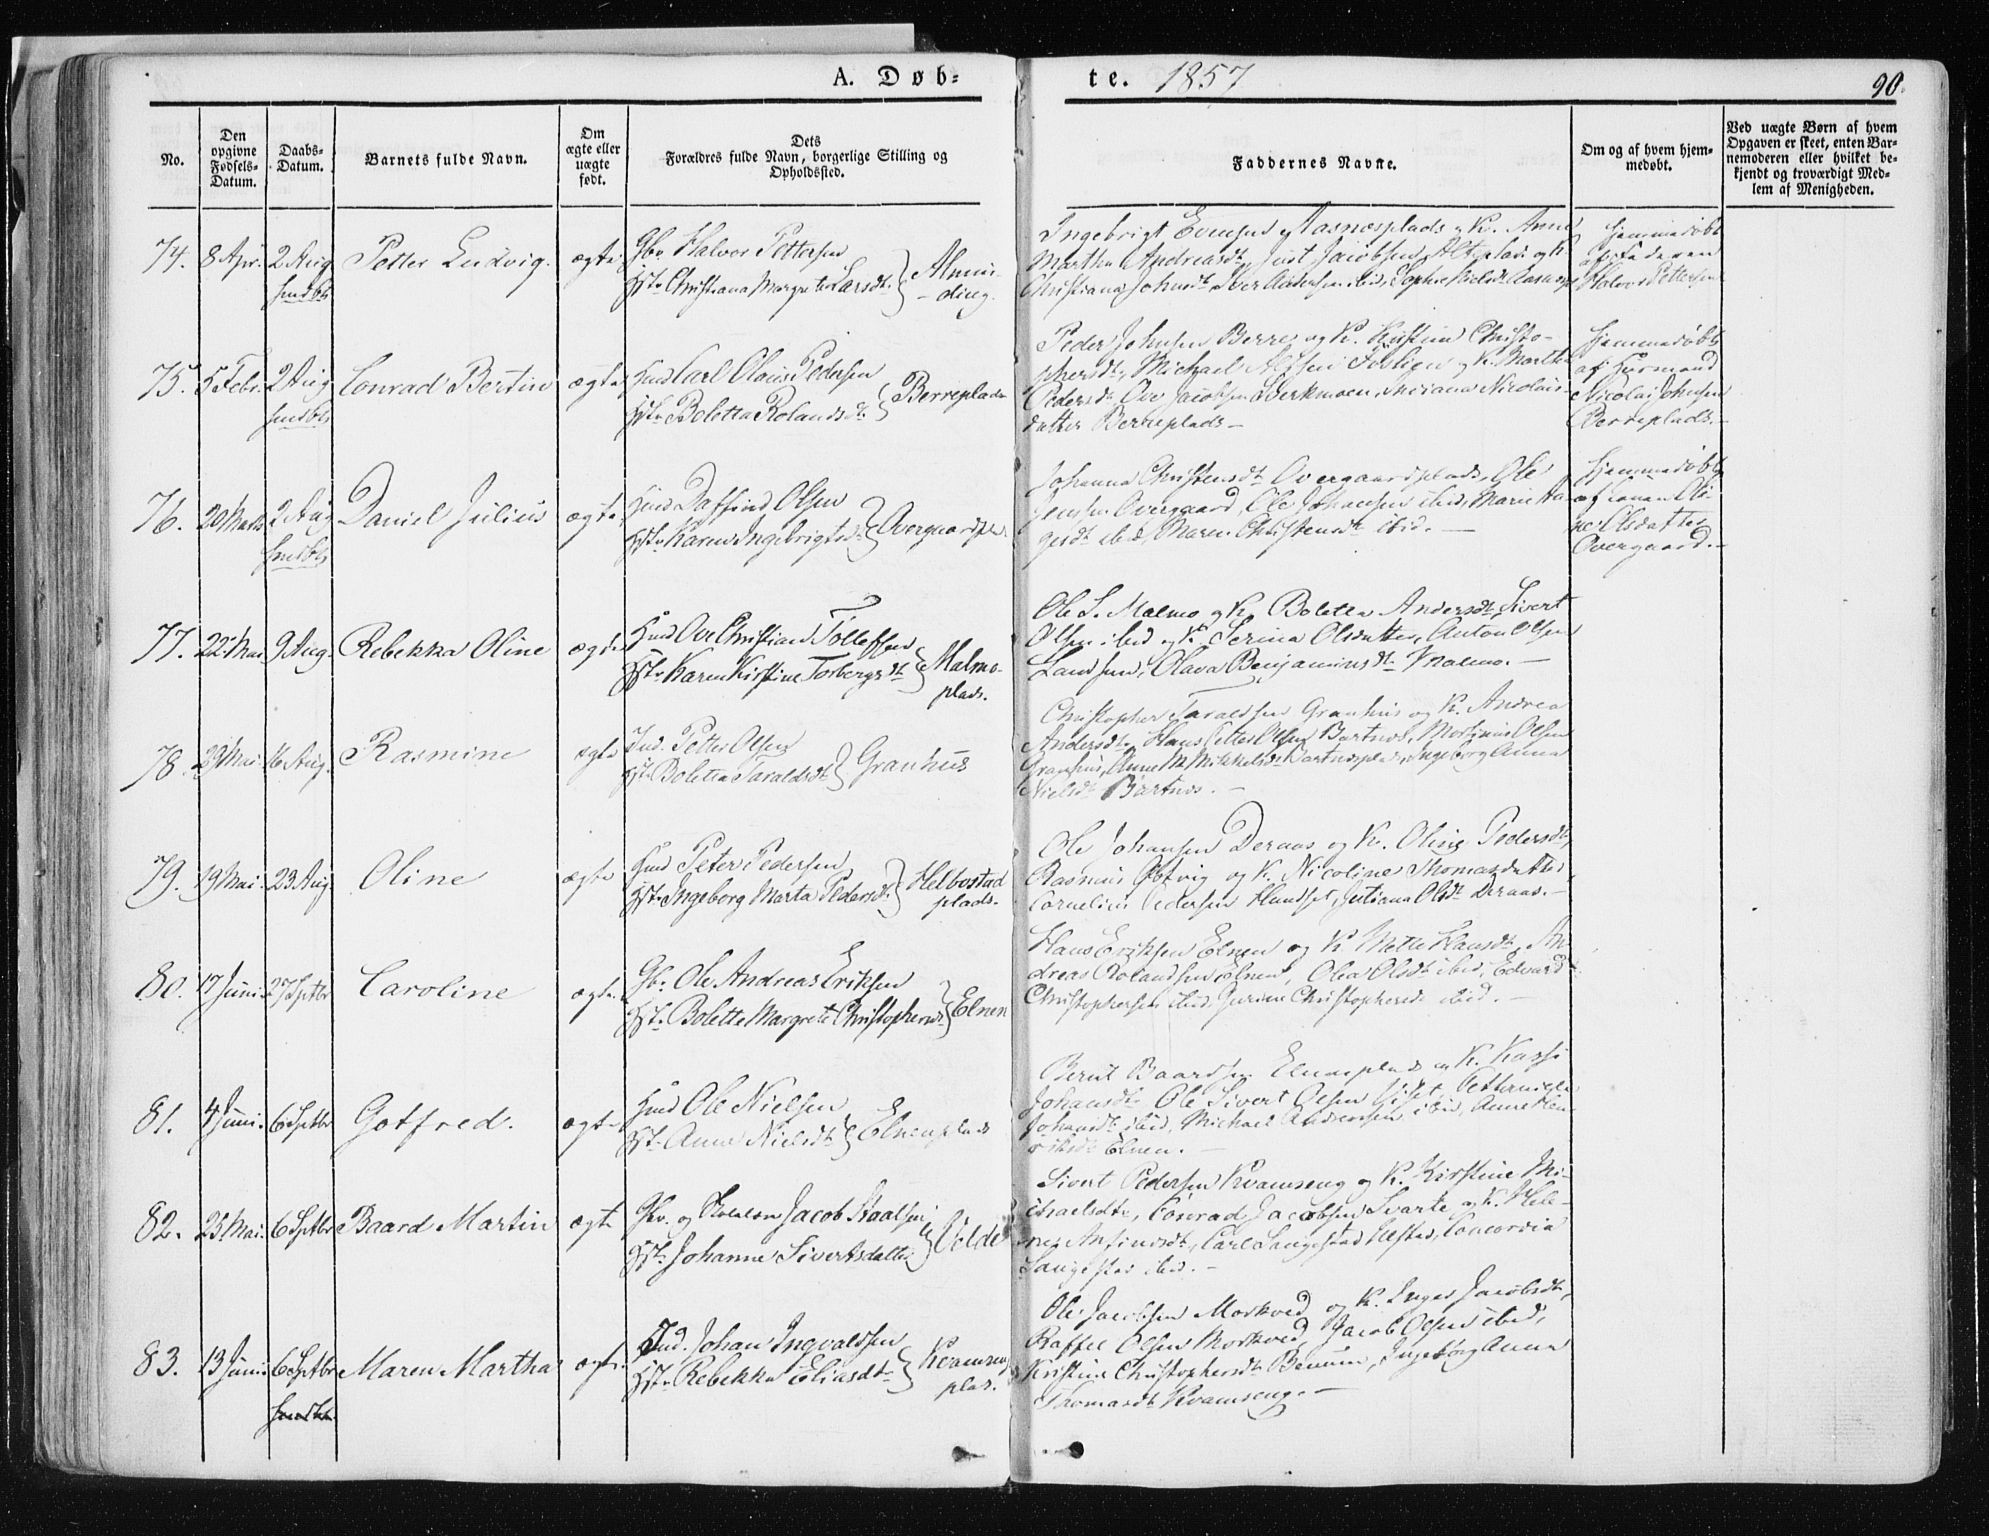 A. Døb-
te. 1857
90.
No.
Den opgivne Fødsels-Datum.
Daabs-Datum.
Barnets fulde Navn.
Om ægte eller uægte født.
Dets Forældres fulde Navn, borgerlige Stilling og Opholdssted.
Faddernes Navne.
Om og af hvem hjem-medøbt.
Ved uægte Børn af hvem Opgaven er skeet, enten Bar-nemoderen eller hvilket be-kjendt og troværdigt Med-lem af Menigheden.
74. 8 Apr. 2 Aug Petter Ludvig. ægte
Gbr. Halvor Pettersen
Hst. Christiana Margrete Larsdt. } Almin-
ding.
Ingebrigt Evensen Aasnæsplads og K. Anne
Martha Andreasdt, Just Jacobsen
Christiana Johnsdt, Iver Andersen ibid, Sophie Nielsdt
hjemmedøbt
af Faderen
Halvor Pettersen
75. 5 Febr. 2 Aug Conrad Bertin ægte
Hmd Carl Olaus Pedersen
Hst. Boletta Rolandsdt. } Berreplads
Peder Johnsen Berre og K. Kirstine Christo-
phersdt, Michael og K. Marthe
Pedersdt, Ove Jacobsen Nicolais-
datter Berreplads -
hjemmedøbt
af Huusmand
Nicolai Johnsen
Berreplads. -
76. 20 Marts 2 Aug Daniel Julius ægte
Hmd Daffind Olsen
Hst. Karen Ingebrigtsd } Overgaardspl.
Johanna Christensdt Overgaardsplads, Ole
Jensen Overgaard, Ole Johansen ibid, Maren
ibid, Maren Christensdt ibid. -
hjemmedøbt
af Konen Oli-
ne Olsdatter
Overgaard. -
77. 22 Mai. 9 Aug. Rebekka Oline ægte
Hmd Ove Christian Tolleffsen
Hst. Karen Kirstine Torbergsdt } Malmo-
plads.
Ole S. Malmo og K. Boletta Andersdt, Sivert
Olsen ibid og K. Serina Olsdatter, Anton Olsen
Olava Benjaminsdt Malmo. -
78. 29 Mai 16 Aug. Rasmine ægte
Ind. Petter Olsen
Hst. Boletta Taraldsdt } Granhus
Christopher Taraldsen Granhus og K. Andrea
Andersdt, Hans Petter Olsen Bartnes, Mortinus Olsen
Granhus, Anne M. Mikkelsdt Bartnesplads, Ingeborg Anna
Nielsdt Bartnes. -
79. 19 Mai. 23 Aug Oline ægte
Hmd Peter Pedersen
Hst. Ingeborg Marta Pedersdt } Helbostad
plads.
Ole Johansen Deraas og K. Oline Pedersdt,
Rasmus Østvig og K. Nicoline Thomasdatter,
Cornelius Pedersen Hundset, Juliana Olsdt Deraas. -
80. 17 Juni. 27 Septbr Caroline ægte
Gbr. Ole Andreas Eriksen
Hst. Bolette Margrete Christophersdt } Elnen
Hans Eriksen Elnen og K. Mette Hansdt, An-
dreas Rolandsen Elnen, Olea Olsdt ibid, Edvard
Christophersen ibid, Christophersdt ibid. -
81. 4 Juni. 6 Septbr Gotfred. ægte
Hmd Ole Nielsen
Hst. Anna Nielsdt } Elnenplads
Bernt Baardsen Elnenplads og K.
Johansdt, Ole Sivert Olsen
Johansdt ibid, Michael Andersen ibid, Anne Hen-
riksdt Elnen. -
82. 25 Mai. 6 Septbr Baard Martin ægte
Gbr. og Jacob Staalsen
Hst. Johanne Sivertsdatter } Velde
Sivert Pedersen Kvamseng og K. Kirstine Mi-
chaelsdtr, Conrad Jacobsen Svarte og K. Hele-
ne, Carl Langestad Concordia
ibid. -
83. 13 Juni 6 Septbr Maren Martha ægte
Ind. Johan Ingvaldsen
Hst. Rebekka Eliasdt } Kvamseng
plad.
Ole Jacobsen Morkved og K. Inger Jacobsdt,
Raffel Olsen Morkved, Jacob Olsen ibid,
Kirstine Christophersdt Ingeborg Anna
Thomasdt Kvamseng. -